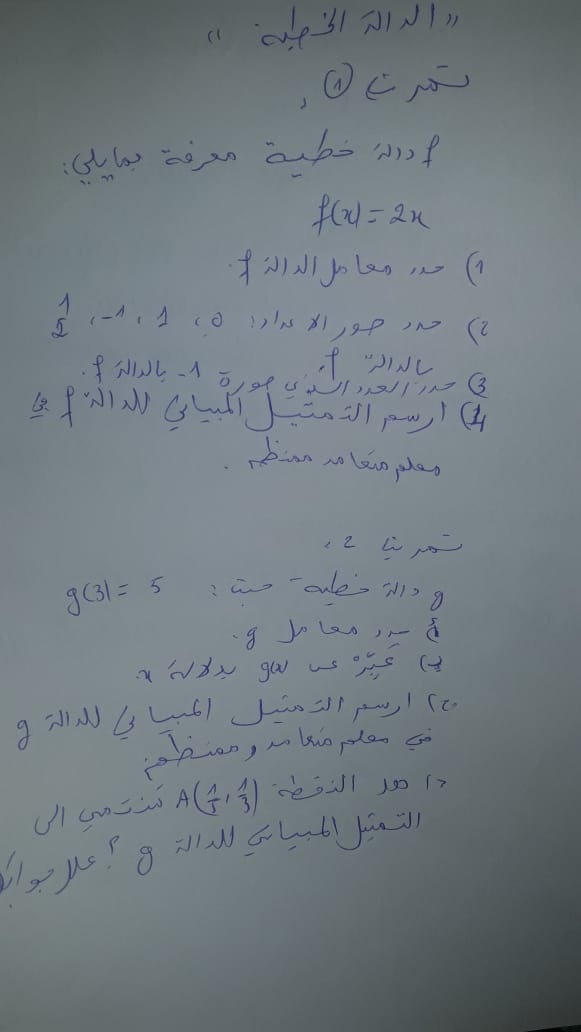 " الدالة الخطية "
تمرين ①
f دالة خطية معرفة بمايلي:
f(x)=2x
1) حدد معامل الدالة f.
2) حدد صور الاعداد: 0، 1، -1، 1/2
بالدالة f.
3) حدد العدد الذي صورة -1 بالدالة f.
4) ارسم التمثيل المبياني للدالة f في
معلم متعامد ممنظم.
تمرين 2،
g دالة خطية حيث: g(3)= 5
أ) حدد معامل g.
ب) عَبِّرْ عن g(x) بدلالة x.
ج) ارسم التمثيل المبياني للدالة g
في معلم متعامد وممنظم:
د) هل النقطة A(1/5, 1/3) تنتمي الى
التمثيل المبياني للدالة g ؟ علل جوابك